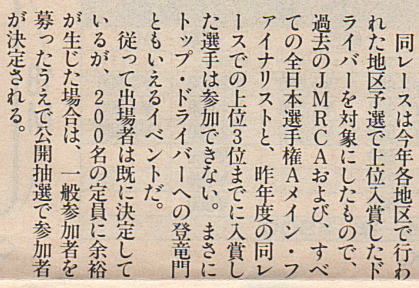 同レースは今年各地区で行わ
れた地区予選で上位入賞したド
ライバーを対象にしたもので、
過去のJMRCAおよび、すべ
ての全日本選手権Aメイン・フ
ァイナリストと、昨年度の同レ
ースでの上位3位までに入賞し
た選手は参加できない。まさに
トップ・ドライバーへの登竜門
ともいえるイベントだ。
　従って出場者は既に決定して
いるが、200名の定員に余裕
が生じた場合は、一般参加者を
募ったうえで公開抽選で参加者
が決定される。